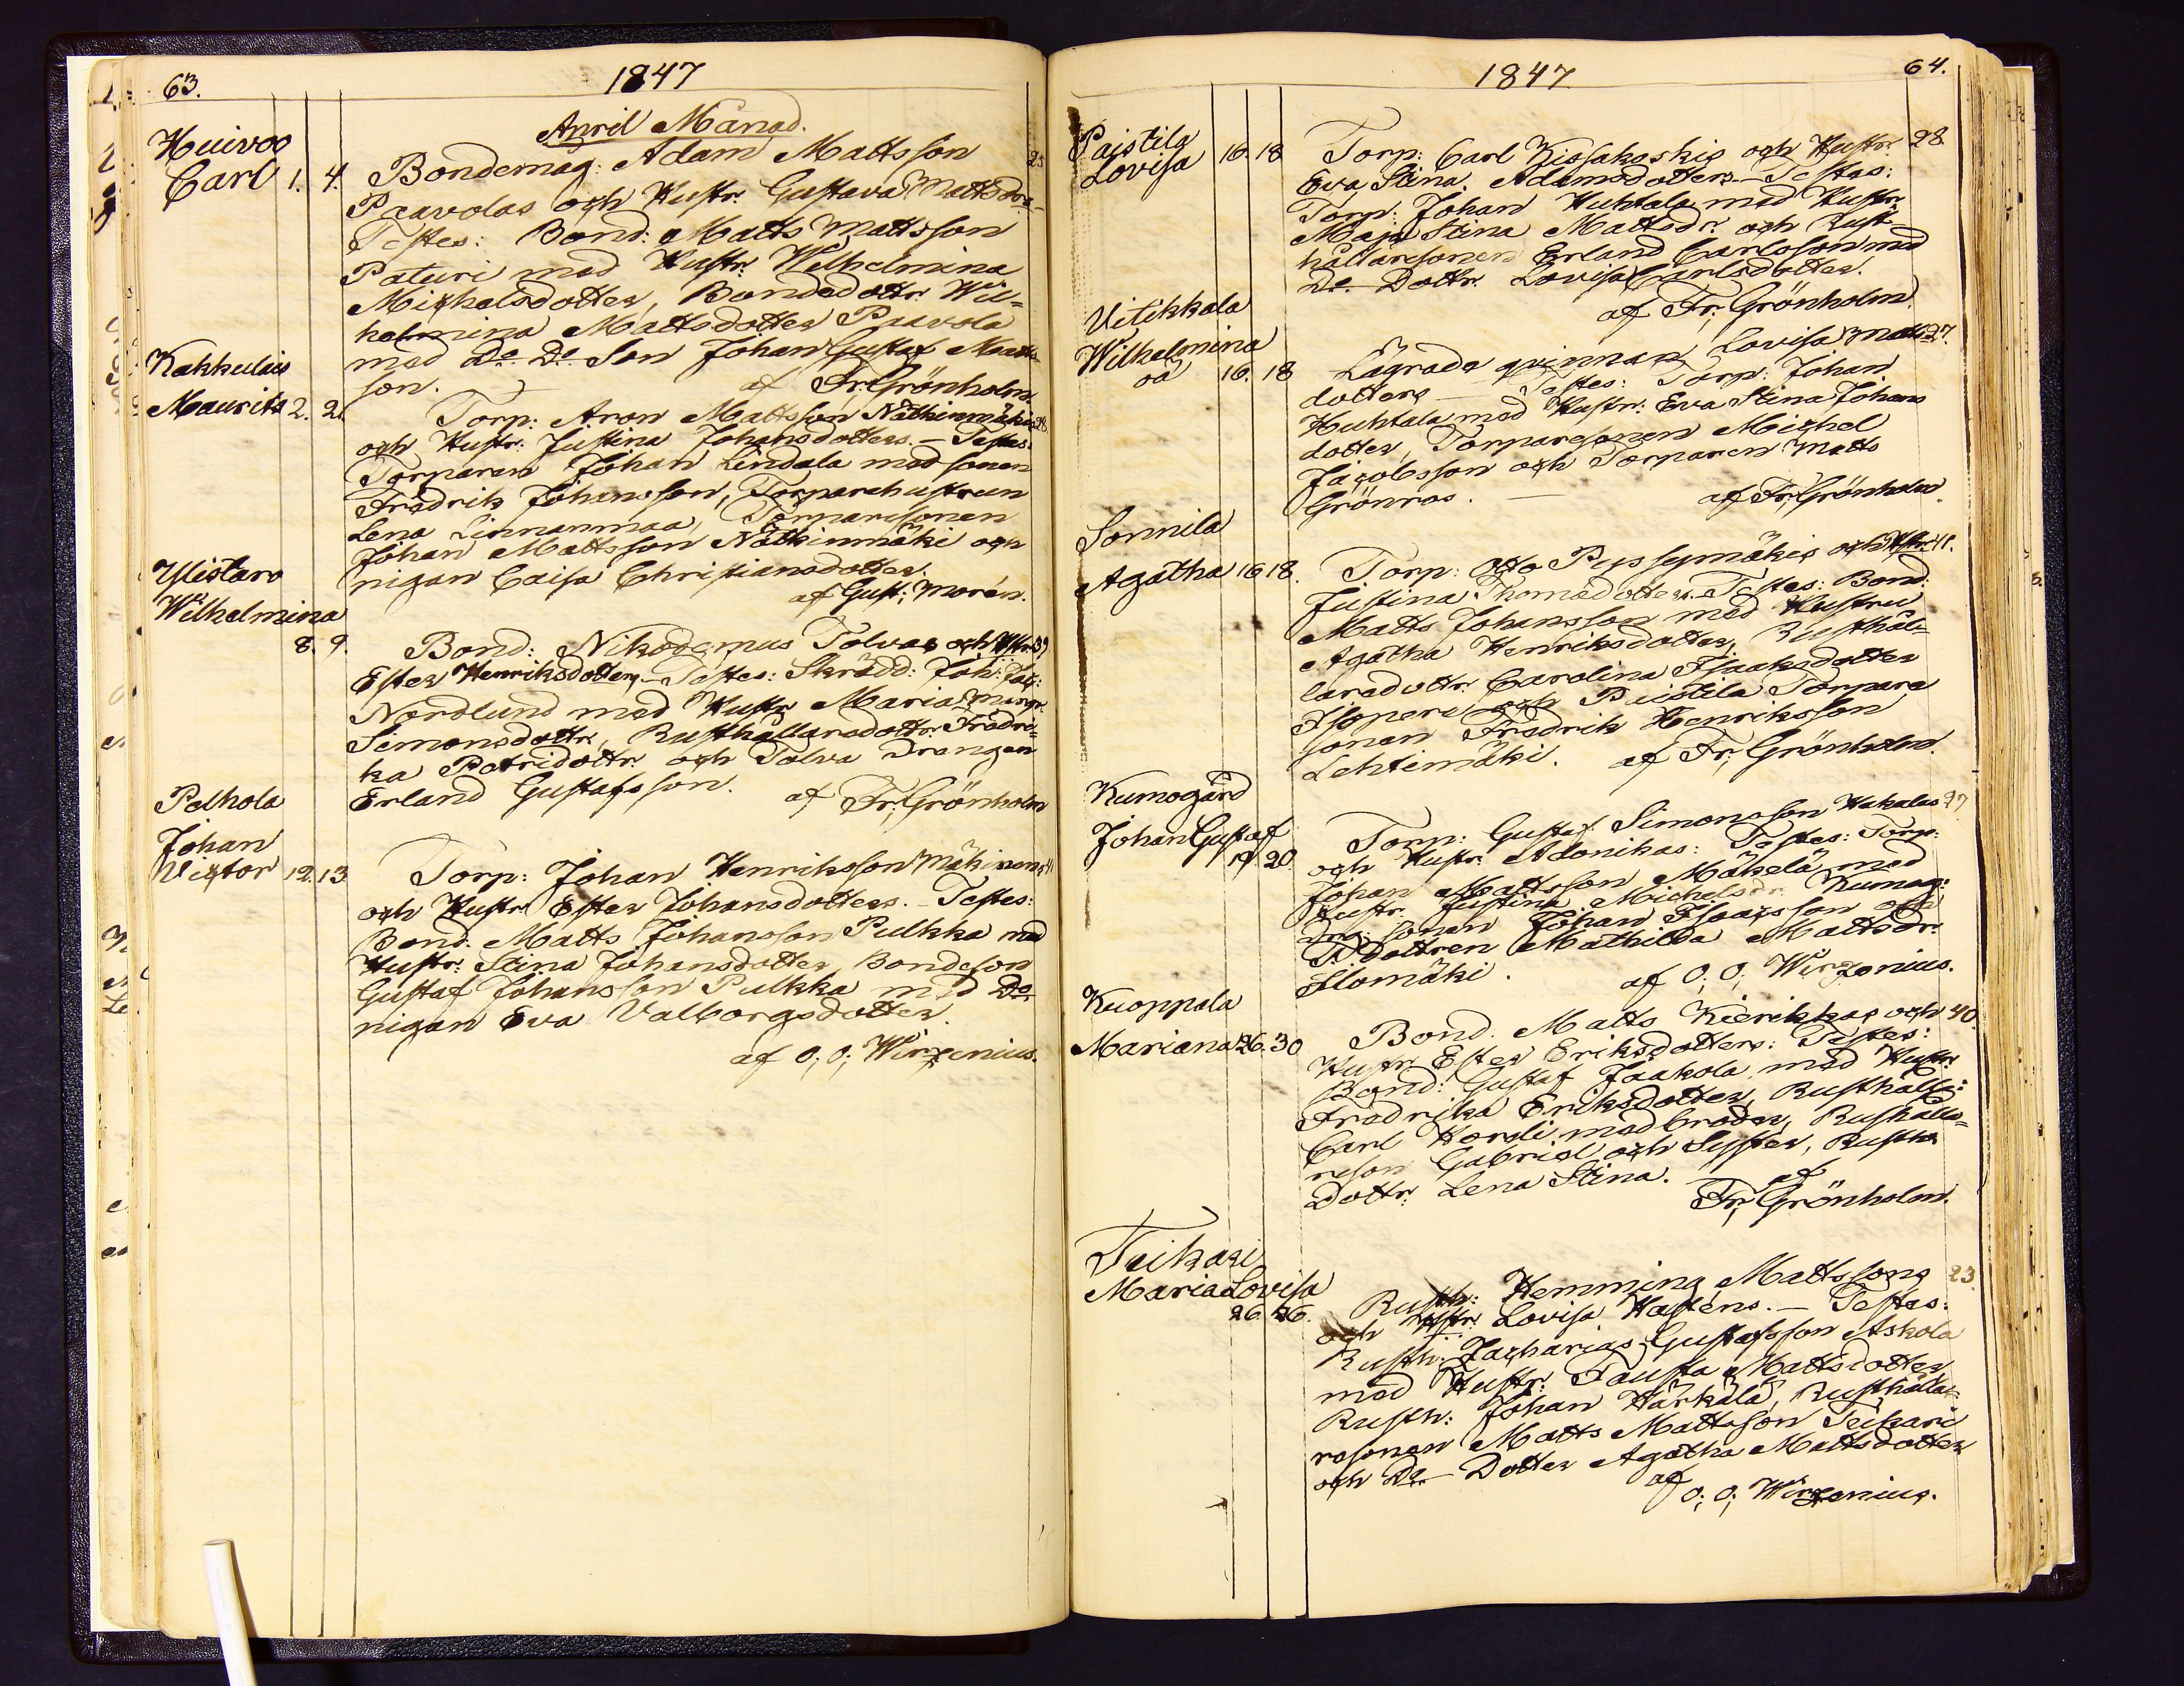 63.
1847
April Månad.
Huivoo
Carl 1. 4. Bondemåg: Adam Mattsson 25
Paavolas och Hustr. Gustava Mattsdrs.
Testes: Bond: Matts Mattsson
Paturi med Hustr. Wilhelmina
Michelsdotter, Bondedottr. Wil=
helmina Mattsdotter Paavola
med Do Do Son Johan Gustaf Matts
son. af Fr: Grönholm.
Kakkulais
Maurits 2. 2. Torp: Aron Mattsson Nätkinmäkis 28
och Hustr: Justina Johansdotters. – Testes:
Torparen Johan Lindala med sonen
Fredrik Johansson, Torparehustrun
Lena Linnanmaa, Torparesonen
Johan Mattsson Nätkinmäki och
Pigan Caisa Christiansdotter.
af Gust: Morén.
Ylistaro
Wilhelmina
8. 9. Bond: Nikodemus Tolvas och Hstr. 39
Ester Henriksdotters – Testes: Skrädd: Joh: Jac:
Nordlund med Hustr Maria Margr.
Simonsdottr, Rusthållaredottr. Fredri=
ka Petridottr. och Tolva Drängen
Erland Gustafsson. af Fr: Grönholm
Pelhola
Johan
Victor 12. 13 Torp: Johan Henriksson Mäkinens
och Hustr Ester Johansdotters. – Testes:
Bond. Matts Johansson Pulkka med
Hustr: Stina Johansdotter, Bondeson
Gustaf Johansson Pulkka med Do
Pigan Eva Valborgsdotter.
af O; O; Wirzenius.
64.
1847
Paistila
Lovisa 16. 18 Torp: Carl Kissakoskis och Hustr. 28
Eva Stina Adamsdotters – Testes:
Torp: Johan Huhtala med Hustr.
Maja Stina Mattsdr. och Rust
hållaresonen Erland Carlsson med
Do Dottr. Lovisa Carlsdotter.
af Fr: Grönholm
Uitikkala
Wilhelmina
oä 16. 18 Lägrade qvinnan Lovisa Matts 27.
dotters – Testes: Torp: Johan
Huhtala med Hustr: Eva Stina Johans
dotter, Torparesonen Michel
Jacobsson och Torparen Matts
Grönros. – af Fr: Grönholm
Sonnila
Agatha 16 18. Torp: Otto Pyssymäkis och Hstr. 41.
Justina Thomædotters. Testes: Bond:
Matts Johansson med Hustru
Agatha Henriksdotter, Rusthål=
laredottr. Carolina Isaaksdotter
Isopere och Paistila Torpare
sonen Fredrik Henriksson
Lehtimäki. af Fr: Grönholm.
Kumogård
Johan Gustaf
19. 20. Torp: Gustaf Simonsson Hakalas 27
och Hustr. Adonikas: Testes: Torp:
Johan Mattsson Mäkelä med
Hustr. Justina Michelsdr. Kumog:
Drg: sonen Johan Isaacsson och
T. Dottren Mathilda Mattsdr.
Slomäki. af O; O; Wirzenius.
Kuoppala
Mariana 26. 30 Bond. Matts Kierikkas och 40.
Hustr Ester Eriksdotters: Testes:
Bond: Gustaf Jaakola med Hustr.
Fredrika Eriksdotter, Rusthåll:
Carl Horeli med broder, Rusthålla=
reson Gabriel och Syster, Rusth.
Dottr: Lena Stina. – af
Fr: Grönholm.
Teikari
Maria Lovisa
26. 26. Rusth: Hemming Mattssons 23
och Hstr. Lovisa Hasténs. – Testes:
Rusth: Zacharias Gustafsson Askola
med Hustr: Fausta Mattsdotter
Rusth: Johan Härkälä, Rusthålla=
resonen Matts Mattsson Teikari
och Do – Dotter Agatha Mattsdotter
af
O; O; Wirzenius.